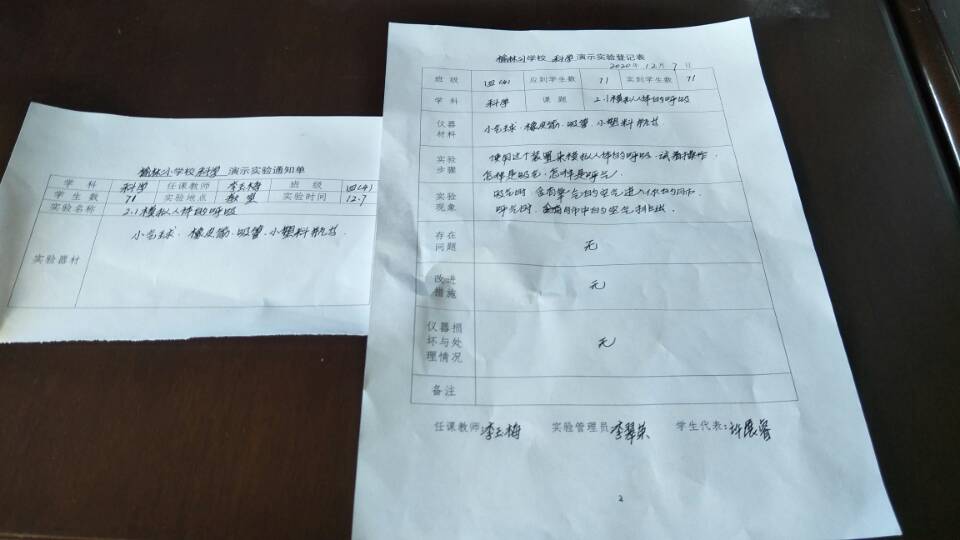 榆林小学校 科学 演示实验通知单
学 科 科学 任课教师 李玉梅 班 级 四(4)
学生数 71 实验地点 教室 实验时间 12.7
实验名称 2.1模拟人体的呼吸
实验器材 小气球、橡皮筋、吸管、小塑料瓶等
榆林小学校 科学 演示实验登记表
2020年12月7日
班 级 四(4) 应到学生数 71 实到学生数 71
学 科 科学 课 题 2.1模拟人体的呼吸
仪器材料 小气球、橡皮筋、吸管、小塑料瓶等
实验步骤 使用这个装置来模拟人体的呼吸,试着操作,
怎样是吸气,怎样是呼气?
实验现象 吸气时,含有氧气的空气进入
呼气时,空气排出
存在问题 无
改进措施 无
仪器损坏与处理情况 无
备注
任课教师:李玉梅 实验管理员:李翠荣 学生代表:许展睿
2